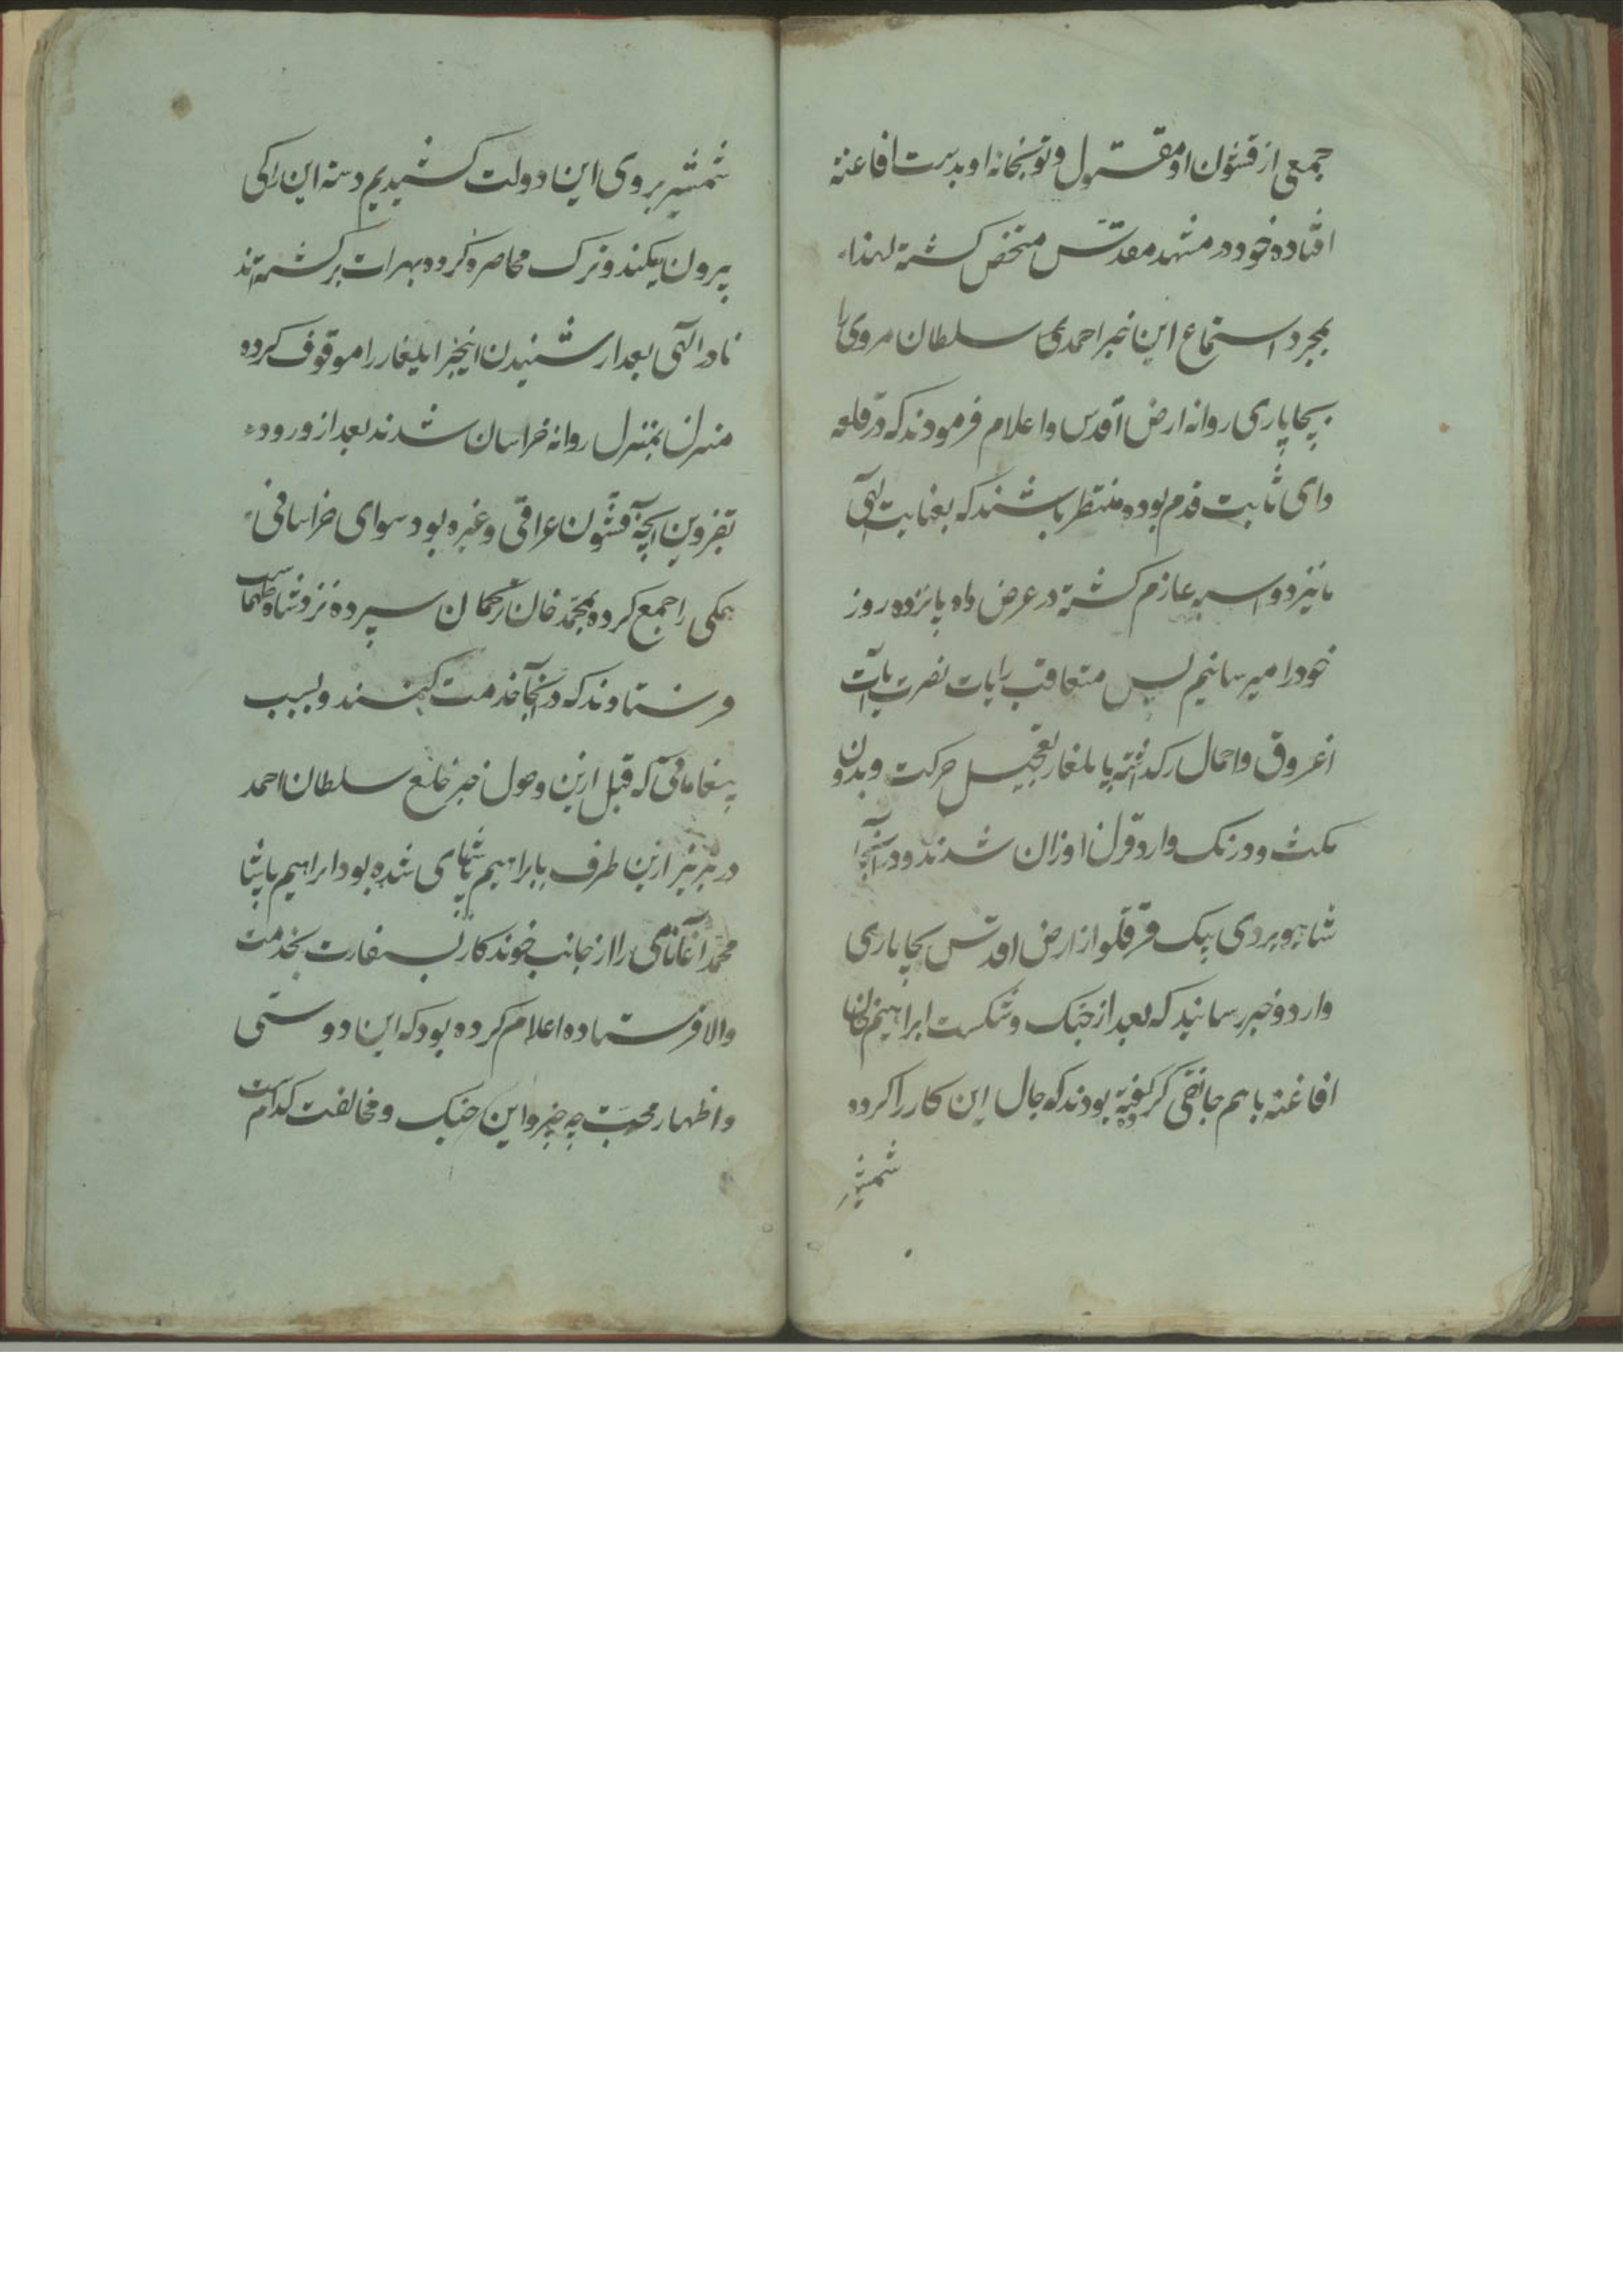 جمعی از قشون او مقتول و توبخانه او بدست افاغنه
افتاده خود در مشهد مقدس متحصن کشته لهذا
بمجرد استماع این خبر احمدی سلطان مروی را
بچاپاری روانه ارض اقدس و اعلام فرمودند که در قلعه
داری ثابت قدم بوده منتظر باشند که بعنایت الهی
ما نیز دو اسبه عازم کشته در عرض ده پانزده روز
خود را میرسانیم پس متعاقب رایات نصرت آیات
اغروق و احمال را کذاشته با یلغار بتعجیل حرکت و بدون
مکث و درنک وارد قزل اوزان شدند و در آنجا
شاهویردی بیک قرقلو از ارض اقدس بچاپاری
وارد و خبر رسانید که بعد از جنک و شکست ابراهیم خان
افاغنه با هم جانقی کرده کفته بودند که حال این کار را کرده
شمشیر
شمشیر بروی این دولت کشیدیم دسته این را کی
بیرون میکند و ترک محاصره کرده بهرات برکشته اند
نادر الهی بعد از شنیدن اینخبر ایلغار را موقوف کرده
منزل بمنزل روانه خراسان شدند بعد از ورود
بقزوین آنچه قشون عراقی و غیره بود سوای خراسانی
همکی را جمع کرده بمحمد خان ترکمان سپرده نزد شاه طهماسب
فرستادند که در آنجا خدمت کنند و بسبب
پیغاماتی که قبل ازین وصول خبر خلع سلطان احمد
در تبریز ازین طرف بابراهیم پاشای شده بود ابراهیم پاشا
محمد آغا نامی را از جانب خوندکار بسفارت بخدمت
والا فرستاده اعلام کرده بود که این دوستی
و اظهار محبت چه چیز و این جنک و مخالفت کدامست